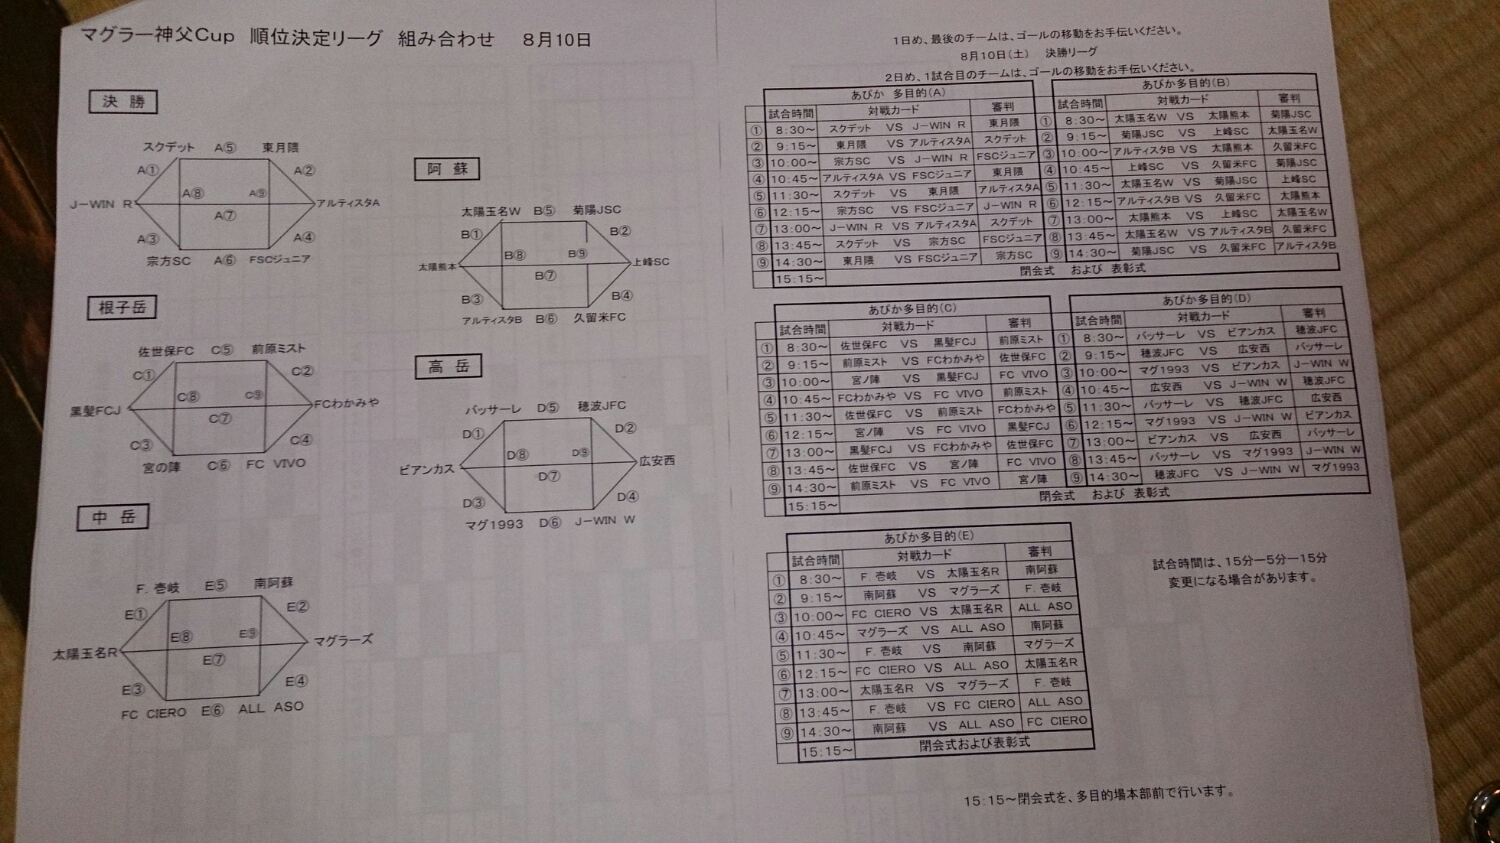 マグラー神父Cup　順位決定リーグ　組み合わせ　８月10日
決　勝
スクデット　A⑤　東月隈
A①　A②
A⑧　A⑨
J－WIN　R　A⑦　アルティスタA
A③　A④
宗方SC　A⑥　FSCジュニア
阿　蘇
太陽玉名W　B⑤　菊陽JSC
B①　B②
B⑧　B⑨
太陽熊本　B⑦　上峰SC
B③　B④
アルティスタB　B⑥　久留米FC
根子岳
佐世保FC　C⑤　前原ミスト
C①　C②
C⑧　C⑨
黒髪FCJ　C⑦　FCわかみや
C③　C④
宮の陣　C⑥　FC　VIVO
高　岳
バッサーレ　D⑤　穂波JFC
D①　D②
D⑧　D⑨
ビアンカス　D⑦　広安西
D③　D④
マグ1993　D⑥　J－WIN　W
中　岳
F. 壱岐　E⑤　南阿蘇
E①　E②
E⑧　E⑨
太陽玉名R　E⑦　マグラーズ
E③　E④
FC　CIERO　E⑥　ALL　ASO
1日め、最後のチームは、ゴールの移動をお手伝いください。
8月10日(土)　決勝リーグ
2日め、1試合目のチームは、ゴールの移動をお手伝いください。
あびか　多目的(A)
試合時間　対戦カード　審判
①　8:30～　スクデット　VS　J－WIN　R　東月隈
②　9:15～　東月隈　VS　アルティスタA　スクデット
③　10:00～　宗方SC　VS　J－WIN　R　FSCジュニア
④　10:45～　アルティスタA　VS　FSCジュニア　東月隈
⑤　11:30～　スクデット　VS　東月隈　アルティスタA
⑥　12:15～　宗方SC　VS　FSCジュニア　J－WIN　R
⑦　13:00～　J－WIN　R　VS　アルティスタA　スクデット
⑧　13:45～　スクデット　VS　宗方SC　FSCジュニア
⑨　14:30～　東月隈　VS　FSCジュニア　宗方SC
15:15～　閉会式　および　表彰式
あびか多目的(B)
試合時間　対戦カード　審判
①　8:30～　太陽玉名W　VS　太陽熊本　菊陽JSC
②　9:15～　菊陽JSC　VS　上峰SC　太陽玉名W
③　10:00～　アルティスタB　VS　太陽熊本　久留米FC
④　10:45～　上峰SC　VS　久留米FC　菊陽JSC
⑤　11:30～　太陽玉名W　VS　菊陽JSC　上峰SC
⑥　12:15～　アルティスタB　VS　久留米FC　太陽熊本
⑦　13:00～　太陽熊本　VS　上峰SC　太陽玉名W
⑧　13:45～　太陽玉名W　VS　アルティスタB　久留米FC
⑨　14:30～　菊陽JSC　VS　久留米FC　アルティスタB
あびか多目的(C)
試合時間　対戦カード　審判
①　8:30～　佐世保FC　VS　黒髪FCJ　前原ミスト
②　9:15～　前原ミスト　VS　FCわかみや　佐世保FC
③　10:00～　宮ノ陣　VS　黒髪FCJ　FC　VIVO
④　10:45～　FCわかみや　VS　FC　VIVO　前原ミスト
⑤　11:30～　佐世保FC　VS　前原ミスト　FCわかみや
⑥　12:15～　宮ノ陣　VS　FC　VIVO　黒髪FCJ
⑦　13:00～　黒髪FCJ　VS　FCわかみや　佐世保FC
⑧　13:45～　佐世保FC　VS　宮ノ陣　FC　VIVO
⑨　14:30～　前原ミスト　VS　FC　VIVO　宮ノ陣
15:15～　閉会式　および　表彰式
あびか多目的(D)
試合時間　対戦カード　審判
①　8:30～　バッサーレ　VS　ビアンカス　穂波JFC
②　9:15～　穂波JFC　VS　広安西　バッサーレ
③　10:00～　マグ1993　VS　ビアンカス　J－WIN　W
④　10:45～　広安西　VS　J－WIN　W　穂波JFC
⑤　11:30～　バッサーレ　VS　穂波JFC　広安西
⑥　12:15～　マグ1993　VS　J－WIN　W　ビアンカス
⑦　13:00～　ビアンカス　VS　広安西　バッサーレ
⑧　13:45～　バッサーレ　VS　マグ1993　J－WIN　W
⑨　14:30～　穂波JFC　VS　J－WIN　W　マグ1993
あびか多目的(E)
試合時間　対戦カード　審判
①　8:30～　F. 壱岐　VS　太陽玉名R　南阿蘇
②　9:15～　南阿蘇　VS　マグラーズ　F. 壱岐
③　10:00～　FC　CIERO　VS　太陽玉名R　ALL　ASO
④　10:45～　マグラーズ　VS　ALL　ASO　南阿蘇
⑤　11:30～　F. 壱岐　VS　南阿蘇　マグラーズ
⑥　12:15～　FC　CIERO　VS　ALL　ASO　太陽玉名R
⑦　13:00～　太陽玉名R　VS　マグラーズ　F. 壱岐
⑧　13:45～　F. 壱岐　VS　FC　CIERO　ALL　ASO
⑨　14:30～　南阿蘇　VS　ALL　ASO　FC　CIERO
15:15～　閉会式および表彰式
試合時間は、15分ー5分ー15分
変更になる場合があります。
15:15～閉会式を、多目的場本部前で行います。